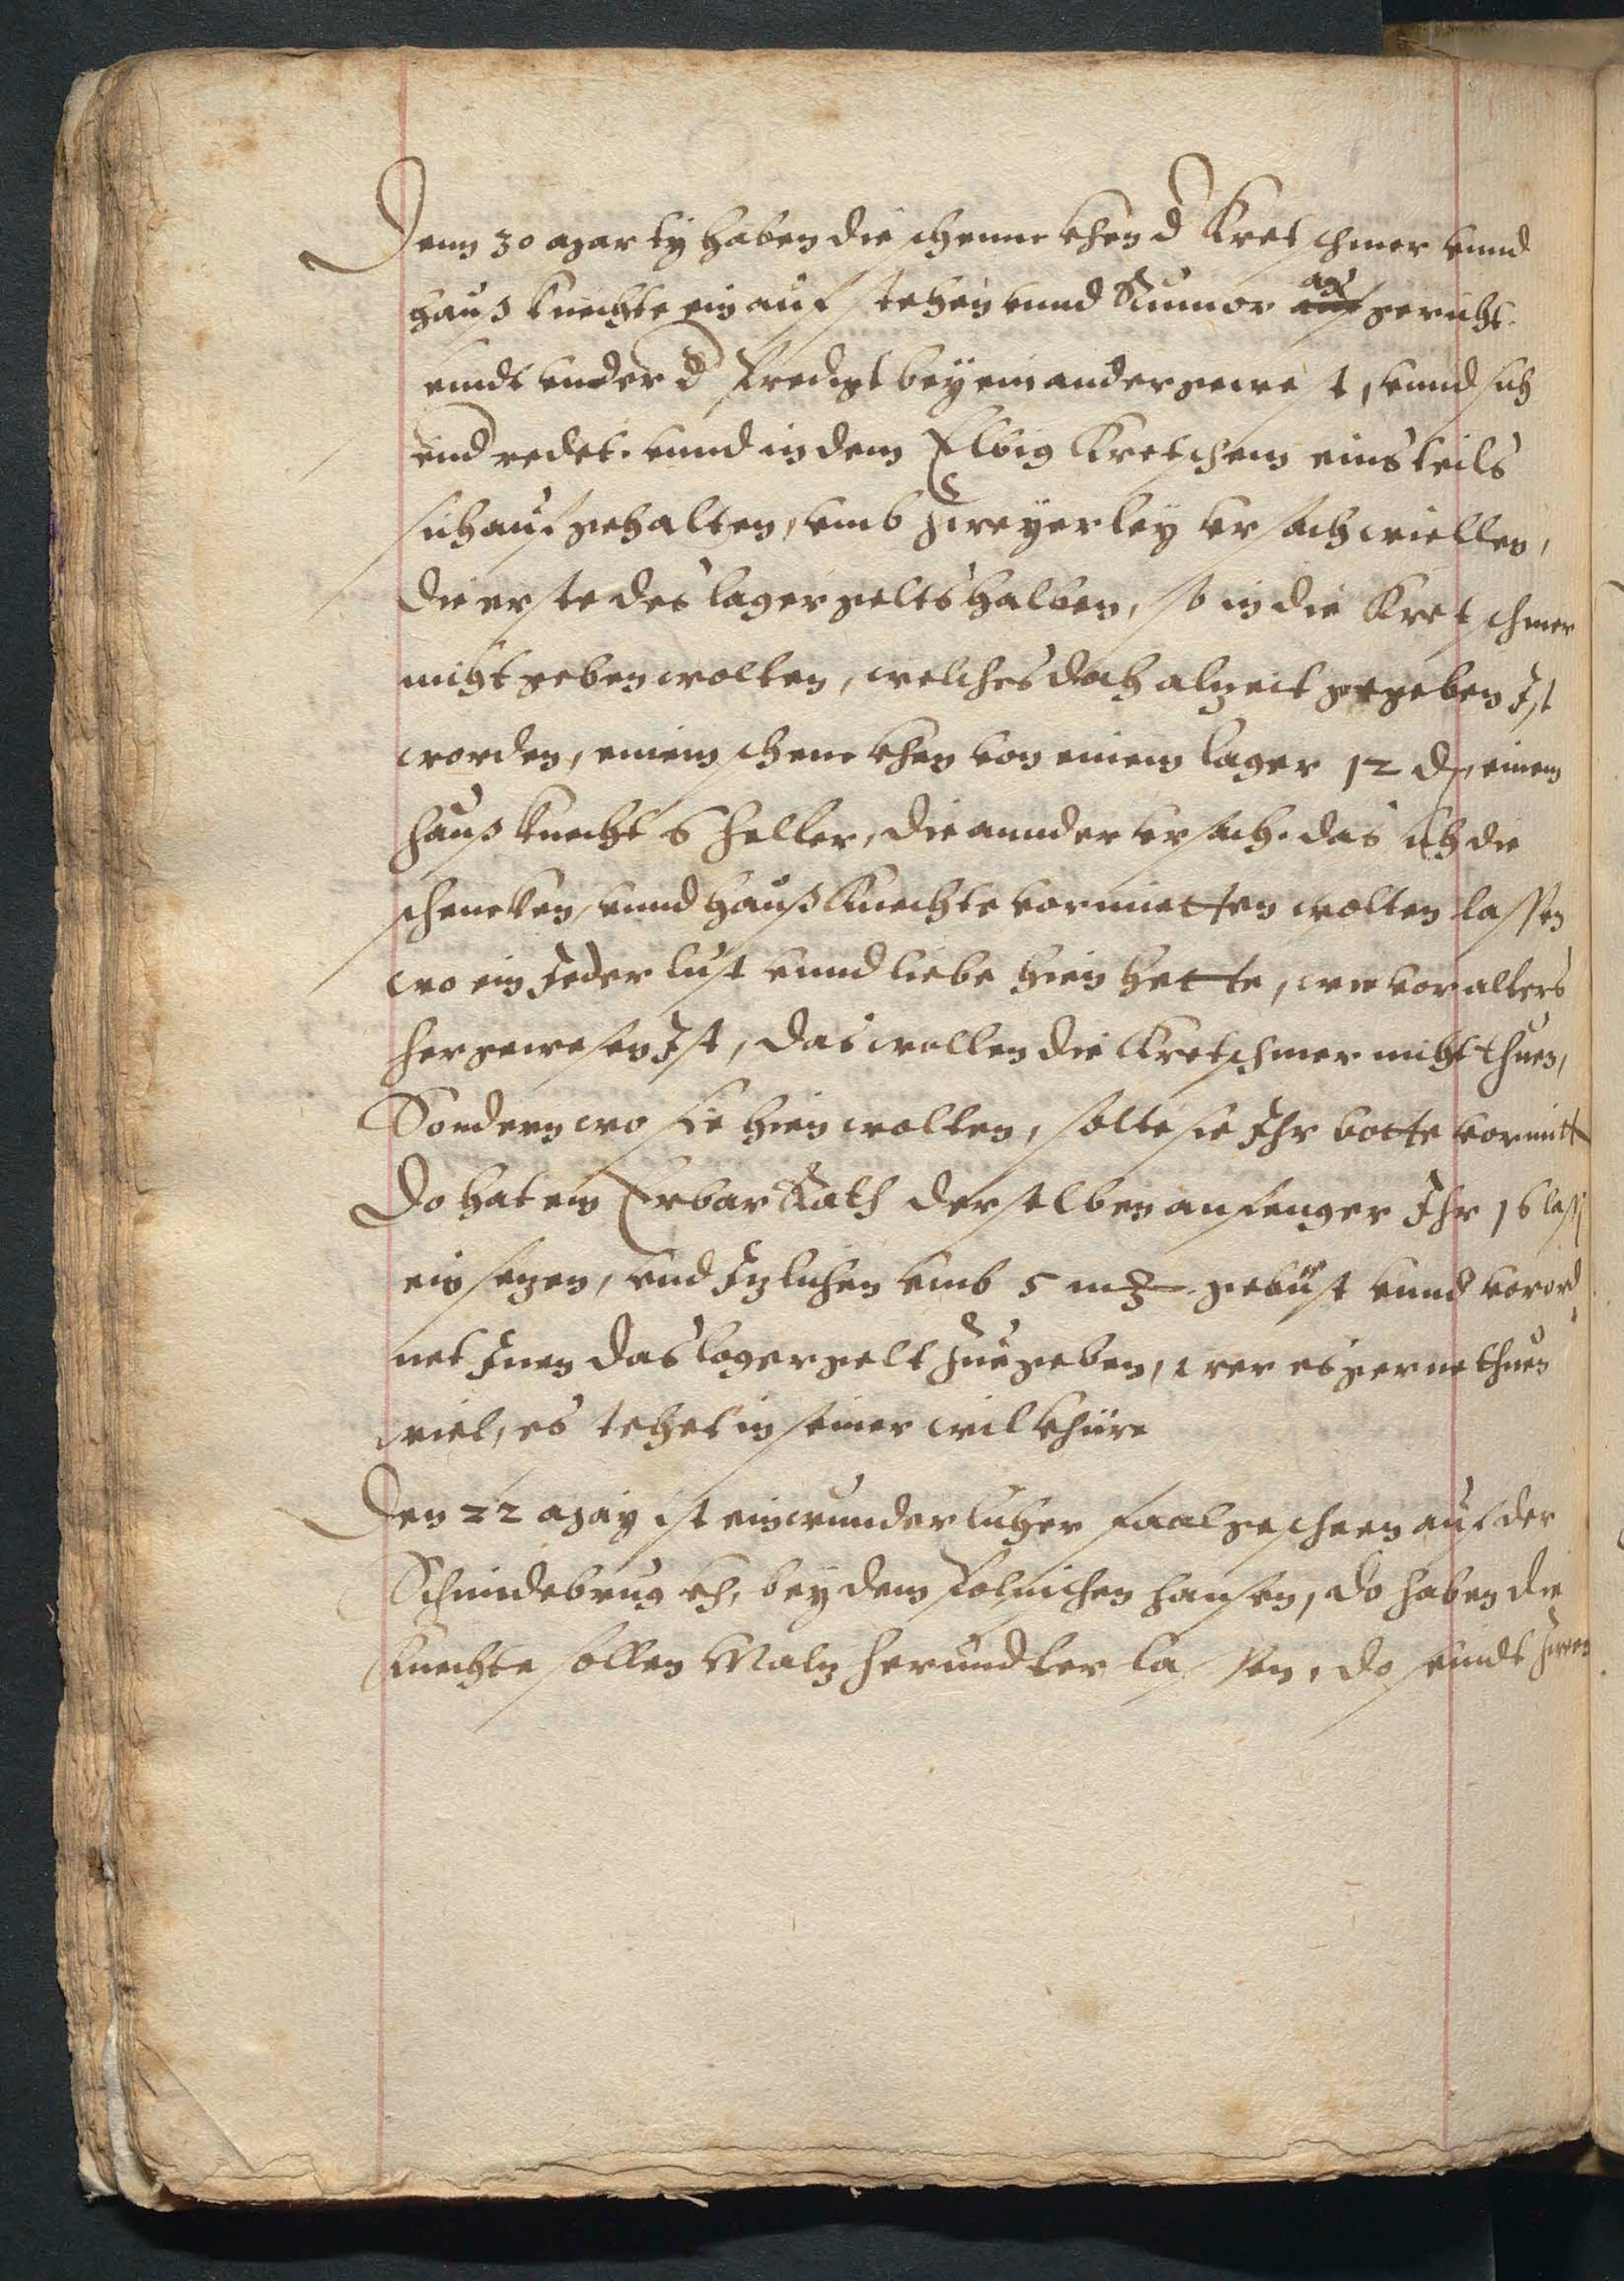 Denn 30 Marty haben die schennckhen d Kretschmer vnnd
hauß knechte ein auf stehen vnnd Rumor an gericht
vnndt vnder d Predigt bey einander gewest, vnnd sich
vnd redet. vnnd in dem Elbig Kretschem eins teils
sich auf gehalten, vmb zweyerley vrsach wiellen,
die erste des lager gelts halben, so in die Kretschmer
nicht geben wolten, welches doch alzeit gegeben Ist
worden, einem schenckhen von einem lager 12 d, einem
hauß knecht 6 heller, die annder vrsach. das sich die
schencken, vnnd hauß knechte vormietten wolten lassen
wo ein Jeder lust vnnd liebe hien hette, wie vor alters
her gewesen Ist, das wollen die Kretschmer nicht thuen,
Sondern wo sie hien wolten, solte sie Ihr botte vormitt
Do hat ein Erbar Rath derselben anfenger Ihr 16 lassen
ein sezen, vnd Izlichen vmb 5 mr gebüst vnnd vorord
net Inen das lager gelt zue geben, wer es gerne thuen
wiel, es stehet in seiner wilkhüre
Den 22 May ist ein wunderlicher faal gescheen auf der
Schmidebrug kh, bey dem Polnischen hansen, do haben die
knechte sollen Malz herundter lassen, do seindt zween